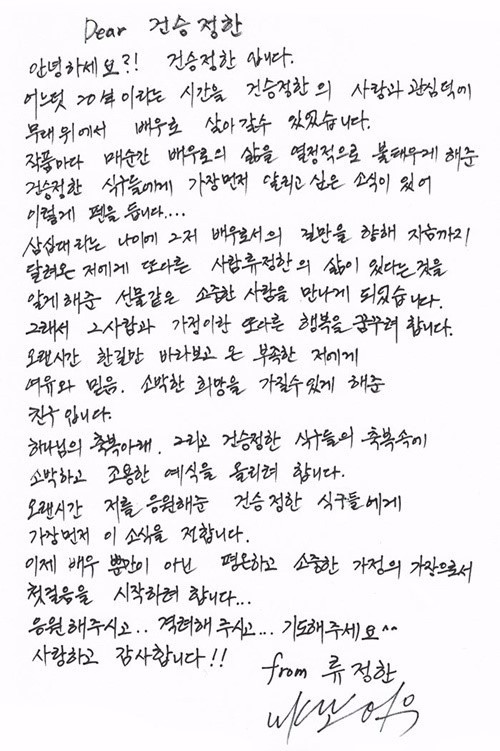 Dear 건승정한
안녕하세요?! 건승정한 입니다.
어느덧 20年이라는 시간을 건승정한의 사랑과 관심덕에
무대위에서 배우로 살아갈수 있었습니다.
작품마다 매순간 배우로의 삶을 열정적으로 불태우게 해준
건승정한 식구들에게 가장먼저 알리고 싶은 소식이 있어
이렇게 펜을 듭니다....
삼십대라는 나이에 그저 배우로서의 길만을 향해 지금까지
달려온 저에게 또다른 사람류정한의 삶이 있다는것을
알게해준 선물같은 소중한 사람을 만나게 되었습니다.
그래서 그사람과 가정이란 또다른 행복을 꿈꾸려 합니다.
오랜시간 한길만 바라보고 온 부족한 저에게
여유와 믿음. 소박한 희망을 가질수있게 해준
친구입니다.
하나님의 축복아래. 그리고 건승정한 식구들의 축복속에
소박하고 조용한 예식을 올리려 합니다.
오랜시간 저를 응원해준 건승정한 식구들에게
가장먼저 이 소식을 전합니다.
이제 배우 뿐만이 아닌 평온하고 소중한 가정의 가장으로서
첫걸음을 시작하려 합니다...
응원해주시고.. 격려해주시고... 기도해주세요^^
사랑하고 감사합니다!!
from 류정한